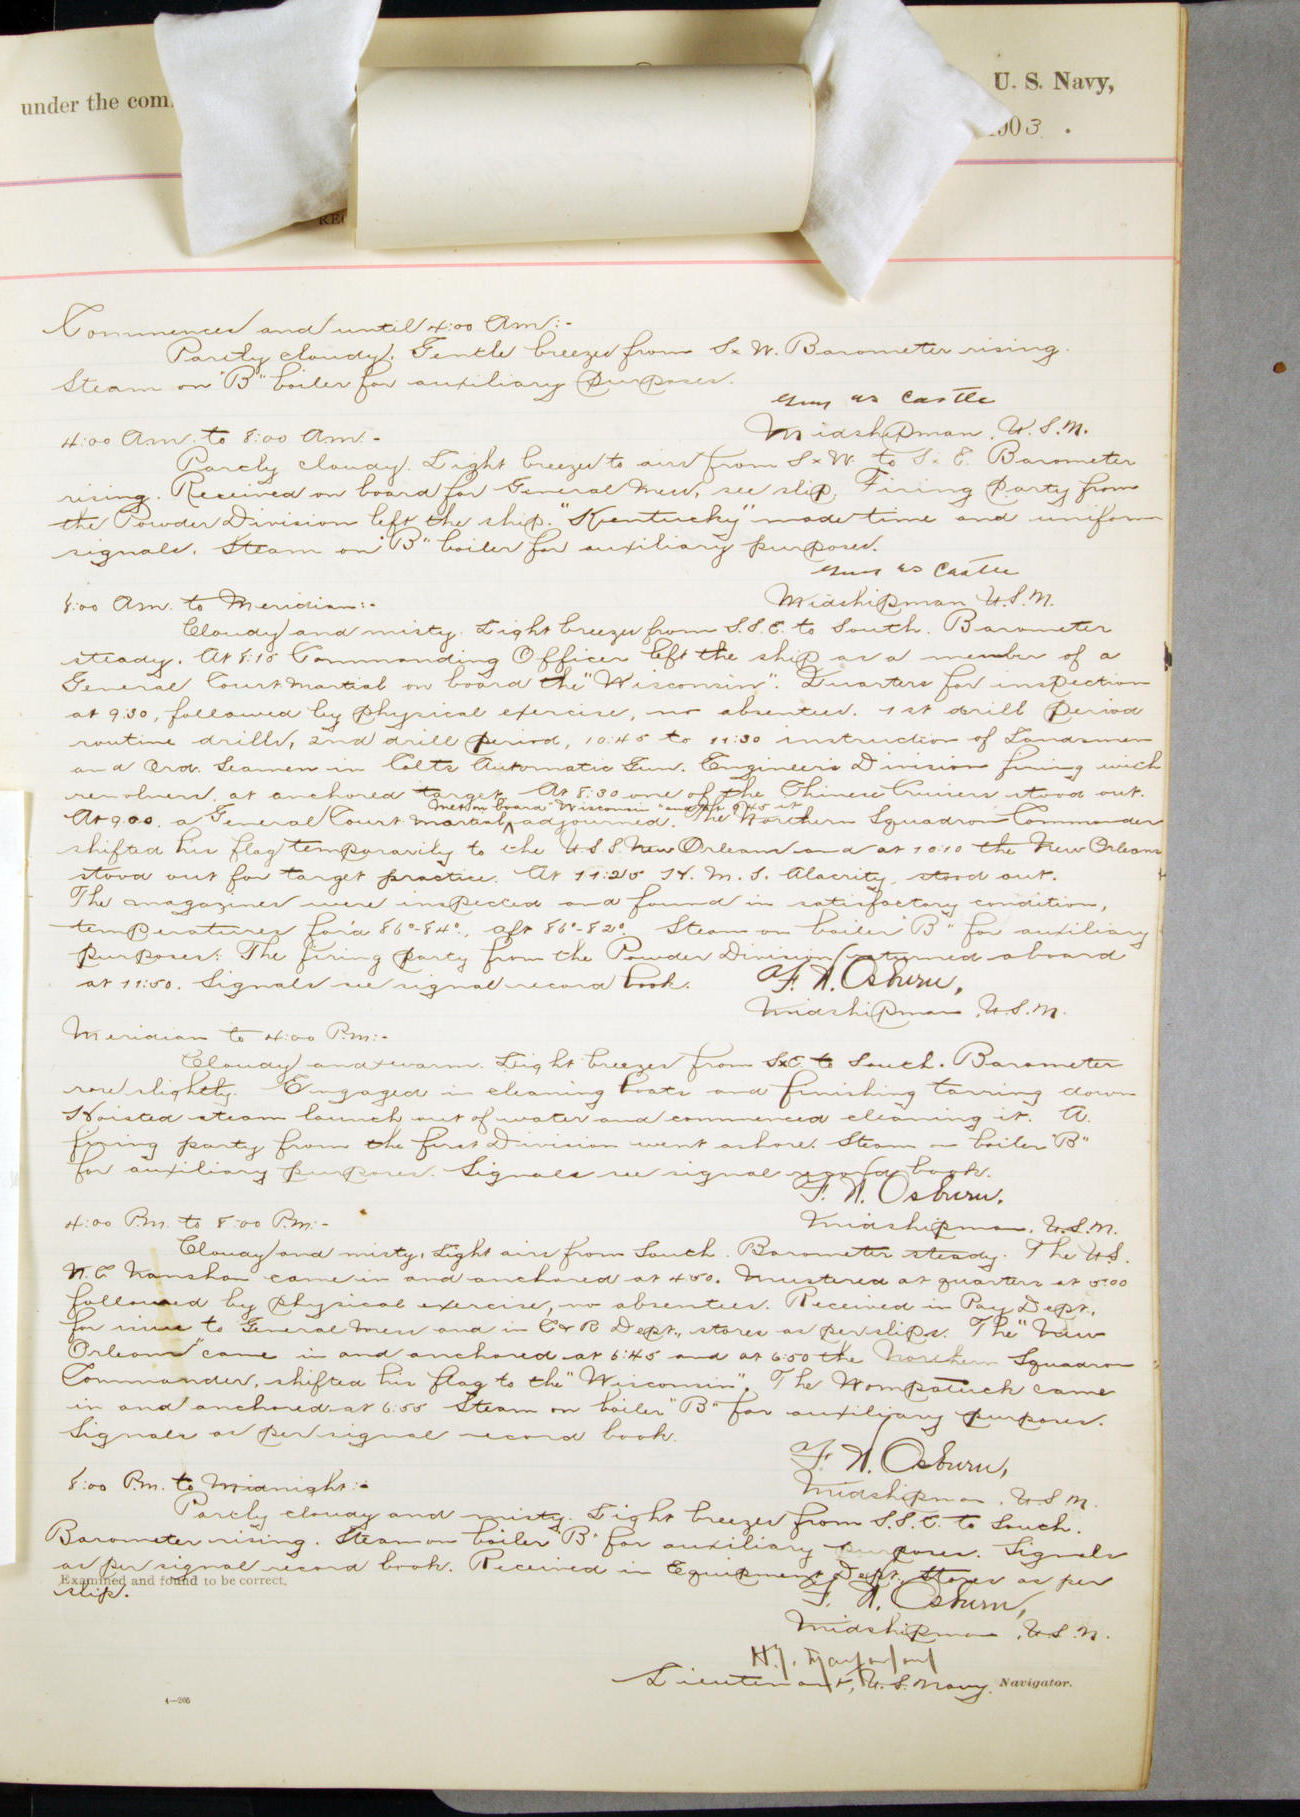 under the com
U. S. Navy,
1903.
Commences and until 4:00 Am:-
Partly cloudy. Gentle breeze from SxW. Barometer rising.
Steam on "B" boiler for auxiliary purposes.
Guy W S Castle
Midshipman, U.S.N.
4:00 Am. to 8:00 Am.-
Partly cloudy. Light breezes to airs from SxW. to SxE. Barometer
rising. Received on board for General Mess, see slip, Firing party from
the Powder Division left the ship. "Kentucky" made time and uniform
signals. Steam on "B" boiler for auxiliary purposes.
Guy W S Castle
Midshipman U.S.N.
8:00 Am. to Meridian:-
Cloudy and misty. Light breezes from S.S.E. to South. Barometer
steady. At 8:15 Commanding Officer left the ship as a member of a
General Court Martial on board the "Wisconsin". Quarters for inspection
at 9:30, followed by physical exercise, no absentees. 1st drill period
routine drills, 2nd drill period, 10:45 to 11:30 instruction of Landsmen
and Ord. Seamen in Colts Automatic Gun. Engineer's Division firing with
revolvers at anchored target. At 8:30 one of the Chinese Cruisers stood out.
met on board "Wisconsin" and at 9:45 it
At 9:00 a General Court Martial adjourned. The Northern Squadron Commander
shifted his flag temporarily to the U.S.S. New Orleans and at 10:10 the New Orleans
stood out for target practice. At 11:25 H. M. S. Alacrity stood out.
The magazines were inspected and found in satisfactory condition,
temperatures for'd 86°-84°, aft 86°-82°. Steam on boiler "B" for auxiliary
purposes. The firing party from the Powder Division returned aboard
at 11:50. Signals see signal record book.
F. N. Osburn,
Midshipman, U.S.N.
Meridian to 4:00 P.m:-
Cloudy and warm. Light breezes from SxE. to South. Barometer
rose slightly. Engaged in cleaning boats and finishing tarring down
Hoisted steam launch out of water and commenced cleaning it. A
firing party from the first Division went ashore. Steam on boiler "B"
for auxiliary purposes. Signals see signal record book.
F. N. Osburn.
Midshipman, U.S.N.
4:00 P.m. to 8:00 P.m:-
Cloudy and misty, Light airs from South. Barometer steady. The U.S.
N.C. Nanshan came in and anchored at 4:50. Mustered at quarters at 5:00
followed by physical exercise, no absentees. Received in Pay Dept.,
for issue to General Mess and in C & R Dept., stores as per slips. The "New
Orleans" came in and anchored at 6:45 and at 6:50 the Northern Squadron
Commander, shifted his flag to the "Wisconsin". The Wompatuck came
in and anchored at 6:55 Steam on boiler "B" for auxiliary purposes.
Signals as per signal record book.
F. N. Osburn,
Midshipman, U.S.N.
8:00 P.m. to Midnight:-
Partly cloudy and misty. Light breezes from S.S.E. to South.
Barometer rising. Steam on boiler "B" for auxiliary purposes. Signals
as per signal record book. Received in Equipment Dept. stores as per
Examined and found to be correct.
slip.
F. N. Osburn,
Midshipman, U.S.N.
Lieutenant, U.S. Navy, Navigator.
4—205